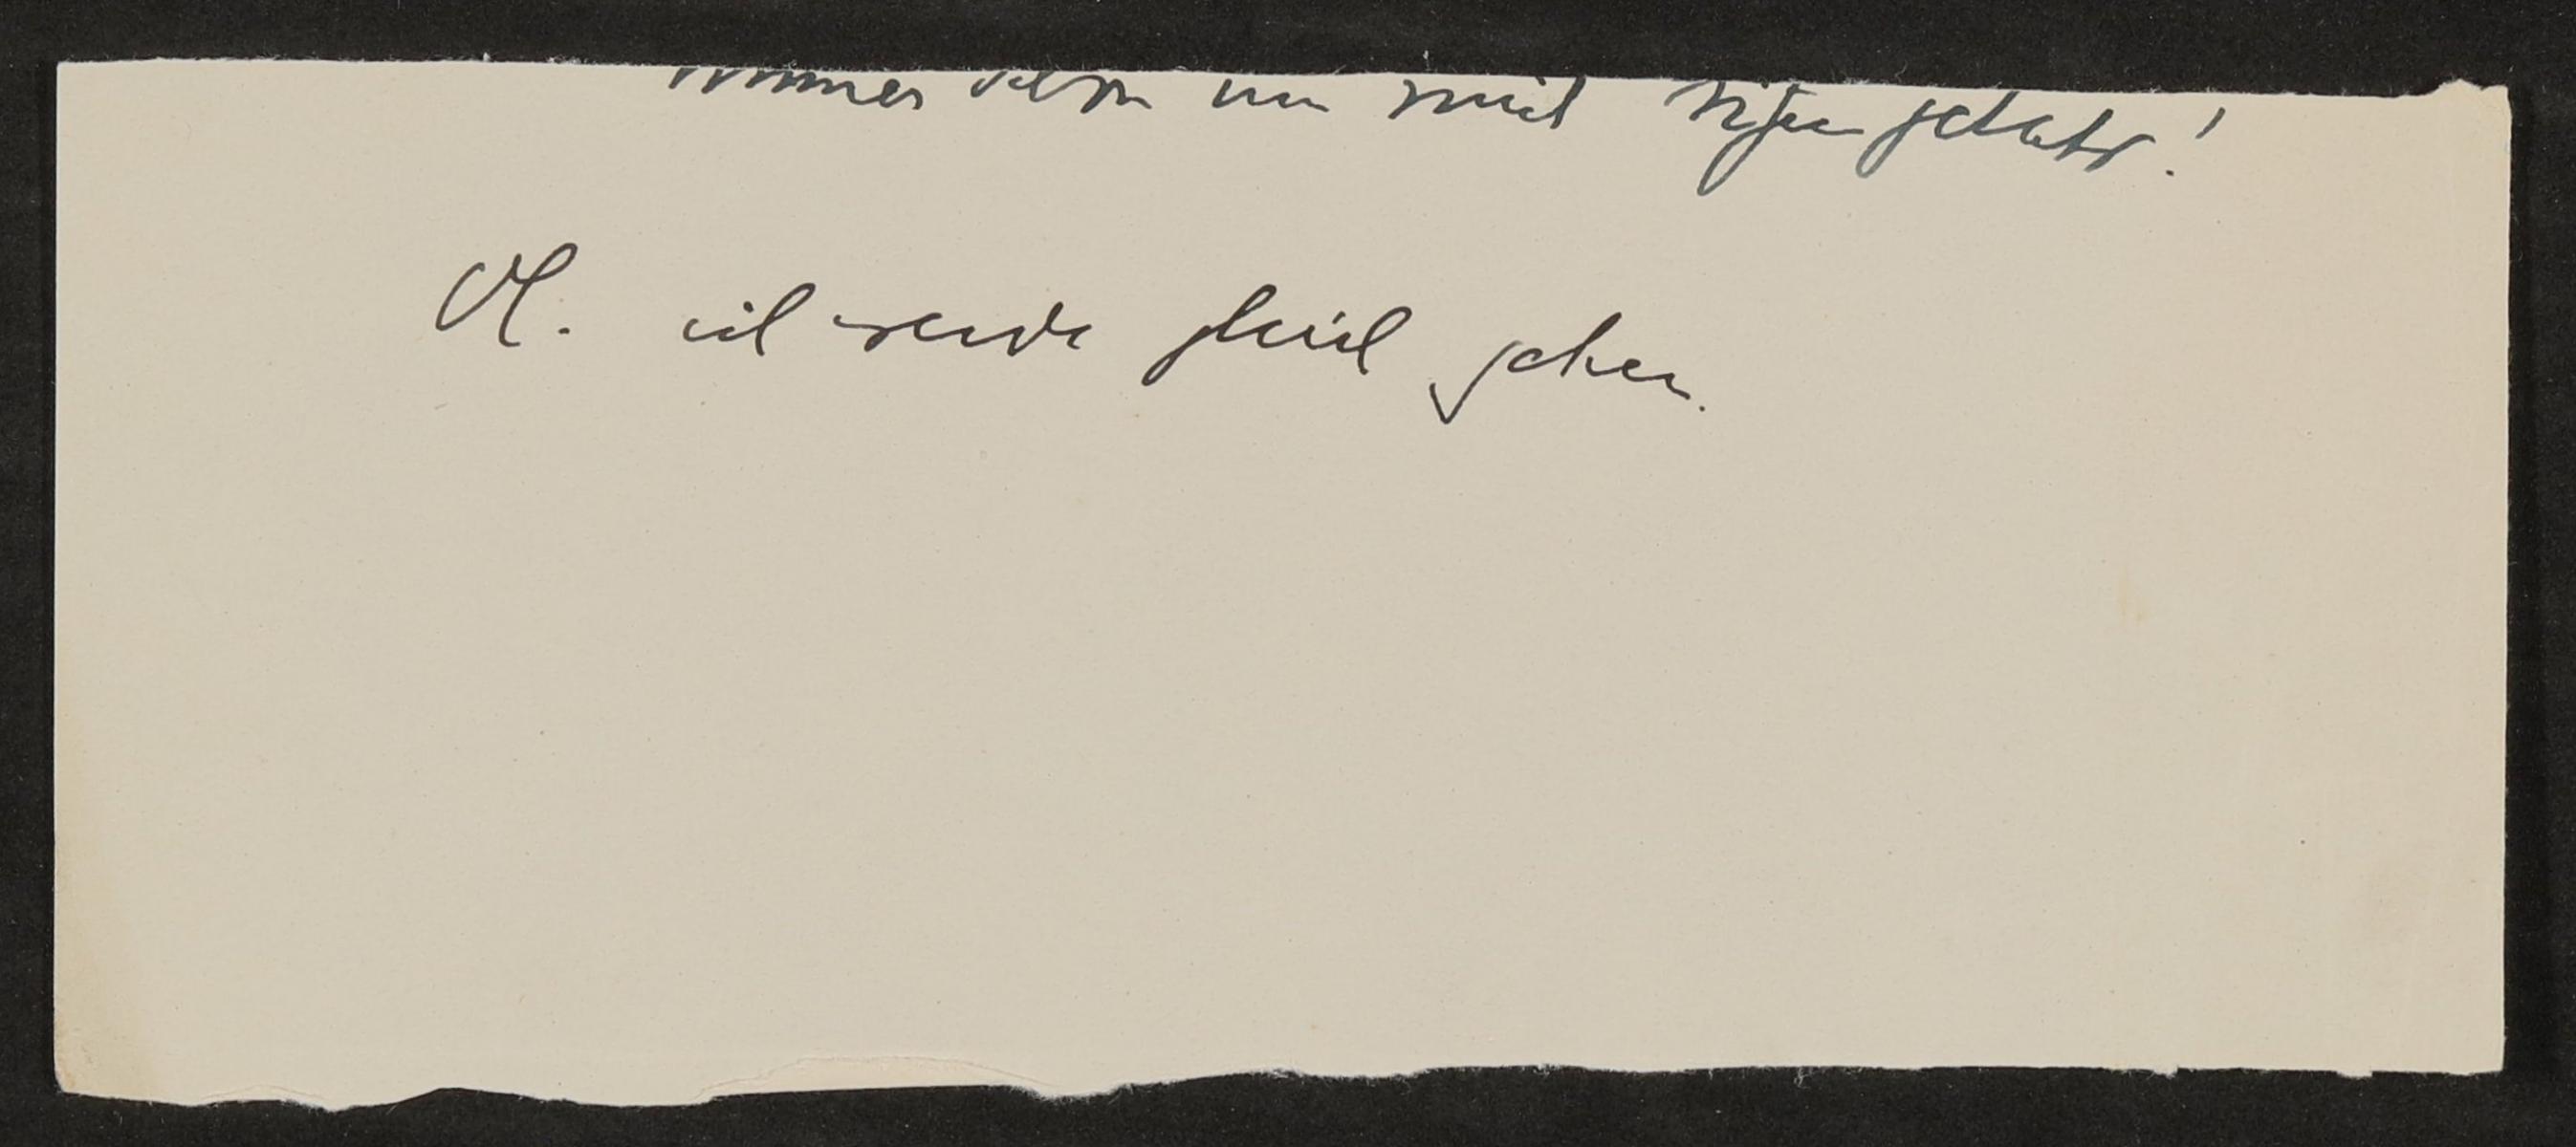 immer schon um mich sitzen gehabt!
A. ich werde gleich gehen.